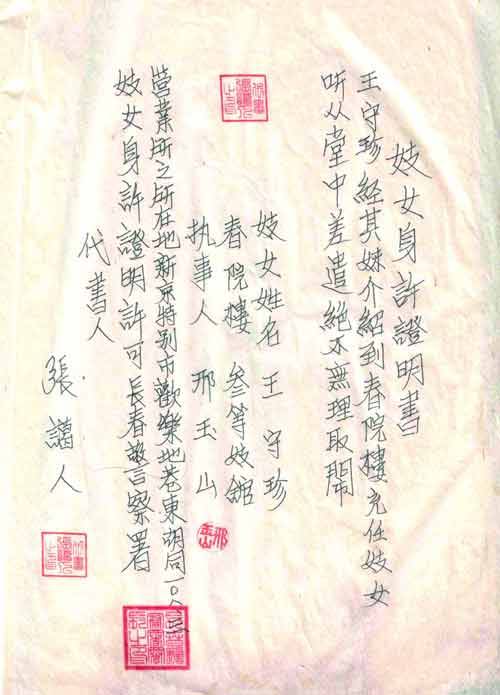 妓女身許證明書
王守珍經其妹介紹到春院樓充任妓女
听从堂中差遣絕不無理取鬧
妓女姓名 王守珍
春院樓 叁等妓舘
执事人 邢玉山
營業所之所在地新京特别市歡樂地巷東胡同一〇八
妓女身許證明許可長春警察署
代書人
張 人